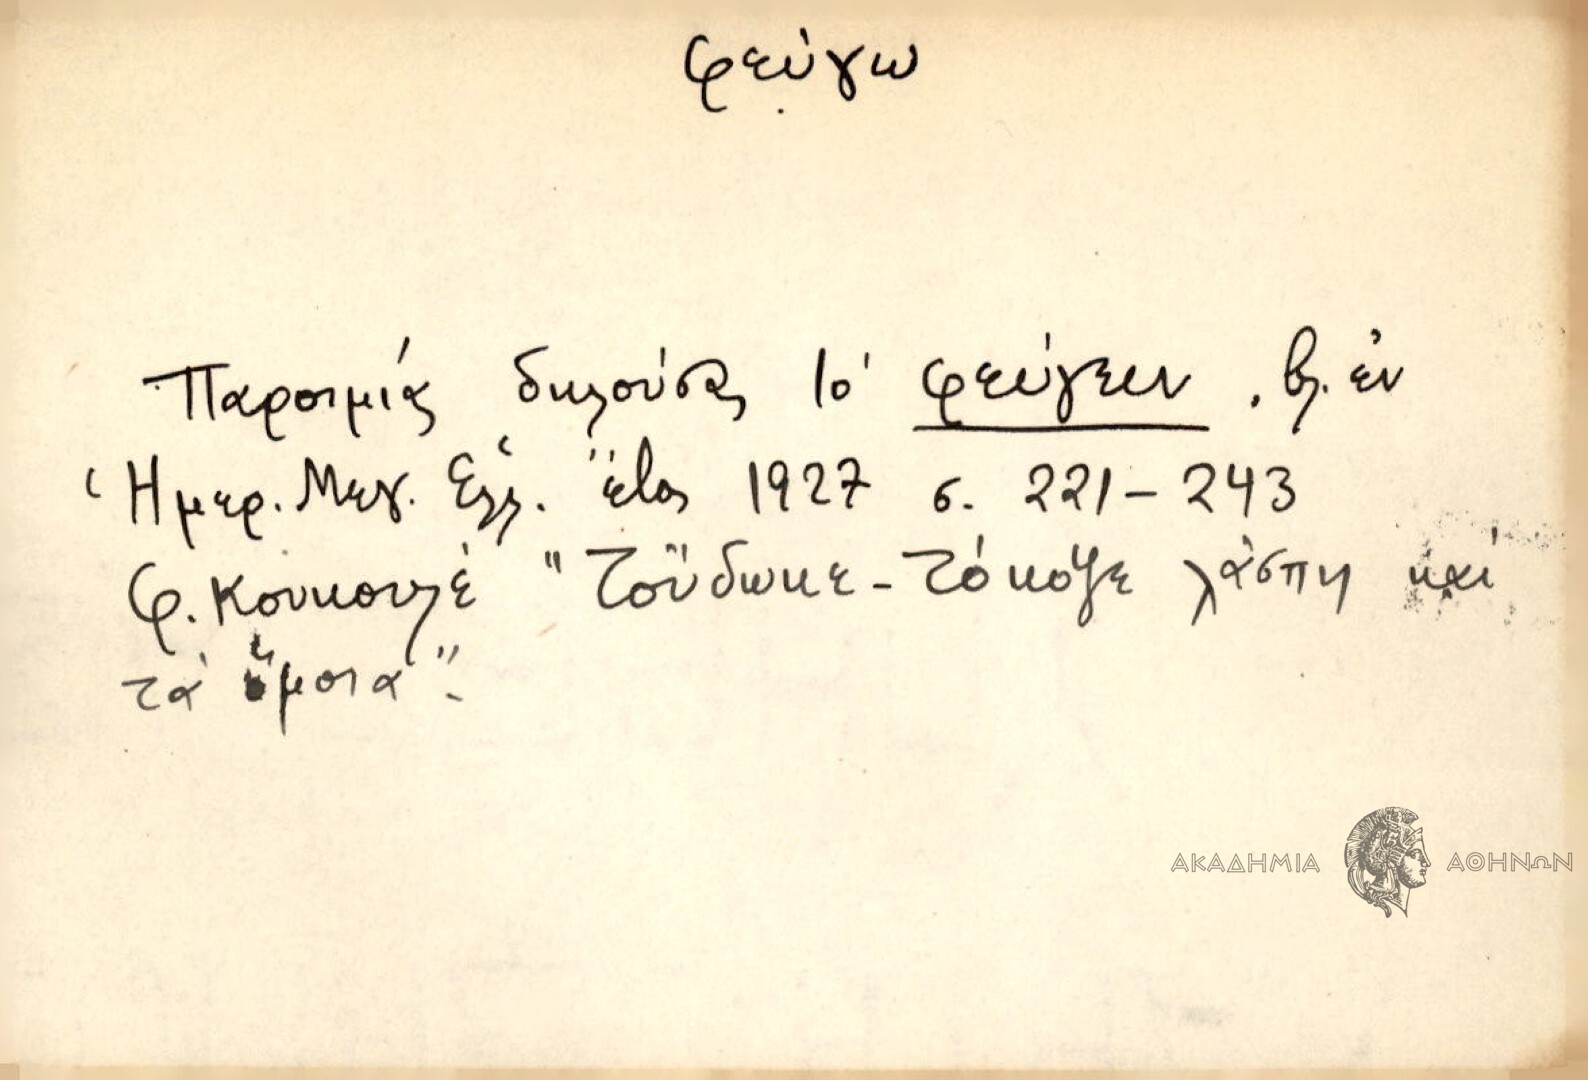 φεύγω
Παροιμίας δηλούσας τό φεύγειν, βλ. ἐν
Ἡμερ. Μεγ. Ἑλλ. ἔτος 1927 σ. 221-243
Φ. Κουκουλέ "Τοὔδωκε - τόκοψε λάσπη καί
τά ὅμοια".
ΑΚΑΔΗΜΙΑ ΑΘΗΝΩΝ